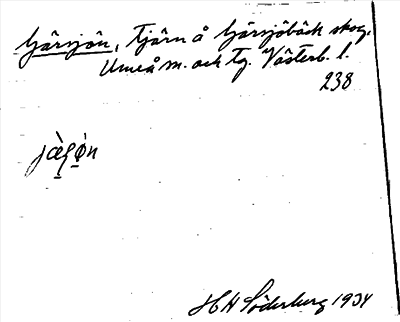 Gärsjön, tjärn å Gärsjöbäck skog,
Umeå m. och tg. Västerb. l.
238
H A Söderberg 1934